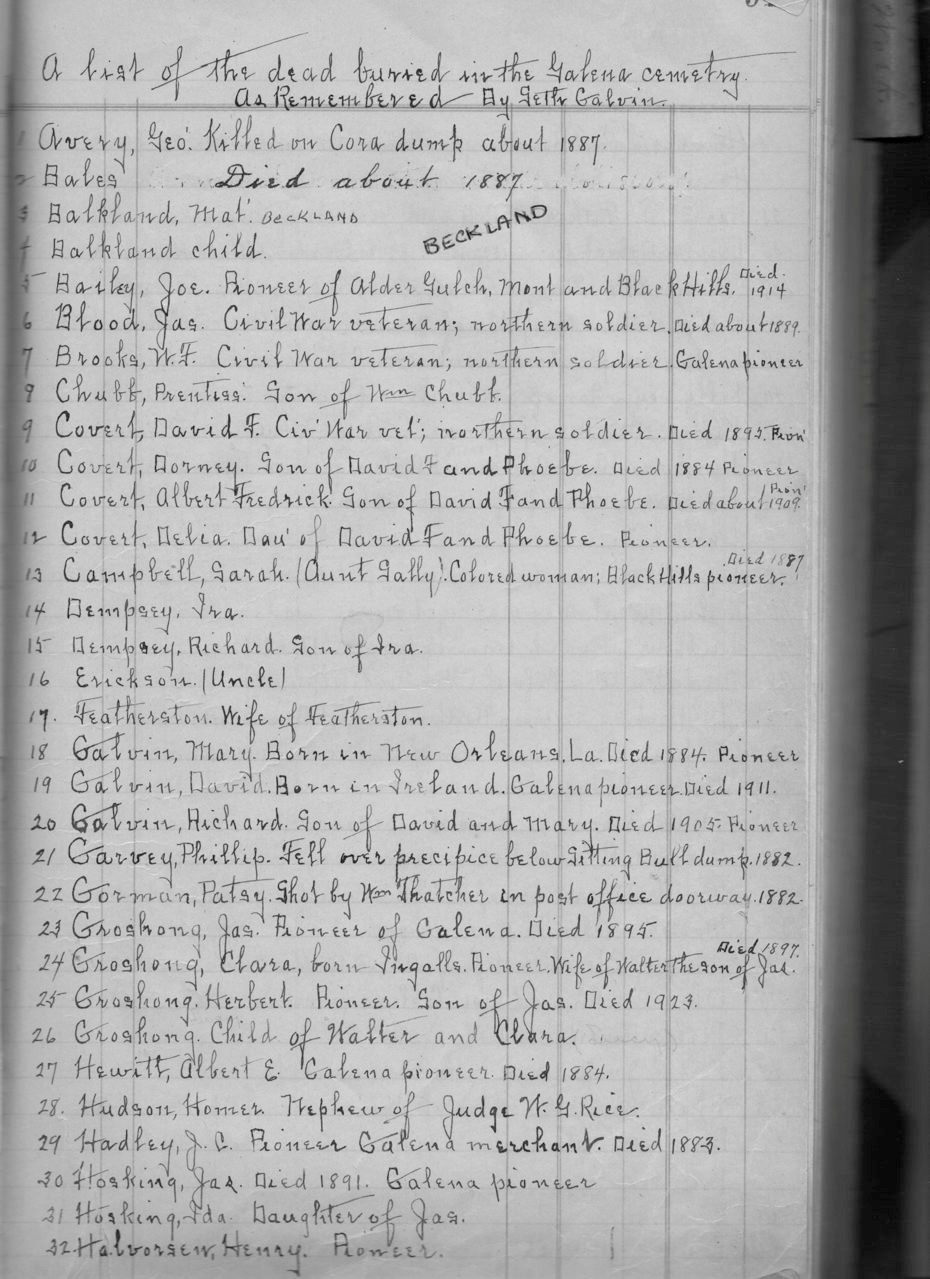 A list of the dead buried in the Galena cemetry.
As Remembered By Seth Galvin.
1 Avery, Geo'. Killed on Cora dump about 1887.
2 Bales Died about 1887
3 Balkland, Mat'. BECKLAND
BECKLAND
4 Balkland child.
5 Bailey, Joe. Pioneer of Alder Gulch, Mont and Black Hills. Died. 1914
6 Blood, Jas. Civil War veteran; northern soldier. Died about 1889.
7 Brooks, W.F. Civil War veteran; northern soldier. Galena pioneer
8 Chubb, Prentiss. Son of Wm Chubb.
9 Covert, David F. Civ' War vet'; northern soldier. Died 1895. Pion'
10 Covert, Dorney. Son of David F and Phoebe. Died 1884 Pioneer
11 Covert, Albert Fredrick. Son of David F and Phoebe. Died about 1909. Pion'
12 Covert, Delia. Dau' of David F and Phoebe. Pioneer.
13 Campbell, Sarah. (Aunt Sally). Colored woman; Black Hills pioneer. Died 1887
14 Dempsey, Ira.
15 Dempsey, Richard. Son of Ira.
16 Erickson. (Uncle)
17. Featherston. Wife of Featherston.
18 Galvin, Mary. Born in New Orleans, La. Died 1884. Pioneer
19 Galvin, David. Born in Ireland. Galena pioneer. Died 1911.
20 Galvin, Richard. Son of David and Mary. Died 1905. Pioneer
21 Garvey, Phillip. Fell over precipice below Sitting Bull dump. 1882.
22 Gorman, Patsy. Shot by Wm Thatcher in post office doorway. 1882.
23 Groshong, Jas. Pioneer of Galena. Died 1895.
24 Groshong, Clara, born Ingalls. Pioneer. Wife of Walter the son of Jas. Died 1897.
25 Groshong. Herbert. Pioneer. Son of Jas. Died 1923.
26 Groshong. Child of Walter and Clara.
27 Hewitt, Albert E. Galena pioneer. Died 1884.
28. Hudson, Homer. Nephew of Judge W. G. Rice.
29 Hadley, J. C. Pioneer Galena merchant. Died 1883.
30 Hosking, Jas. Died 1891. Galena pioneer
31 Hosking, Ida. Daughter of Jas.
32. Halvorsen, Henry. Pioneer.